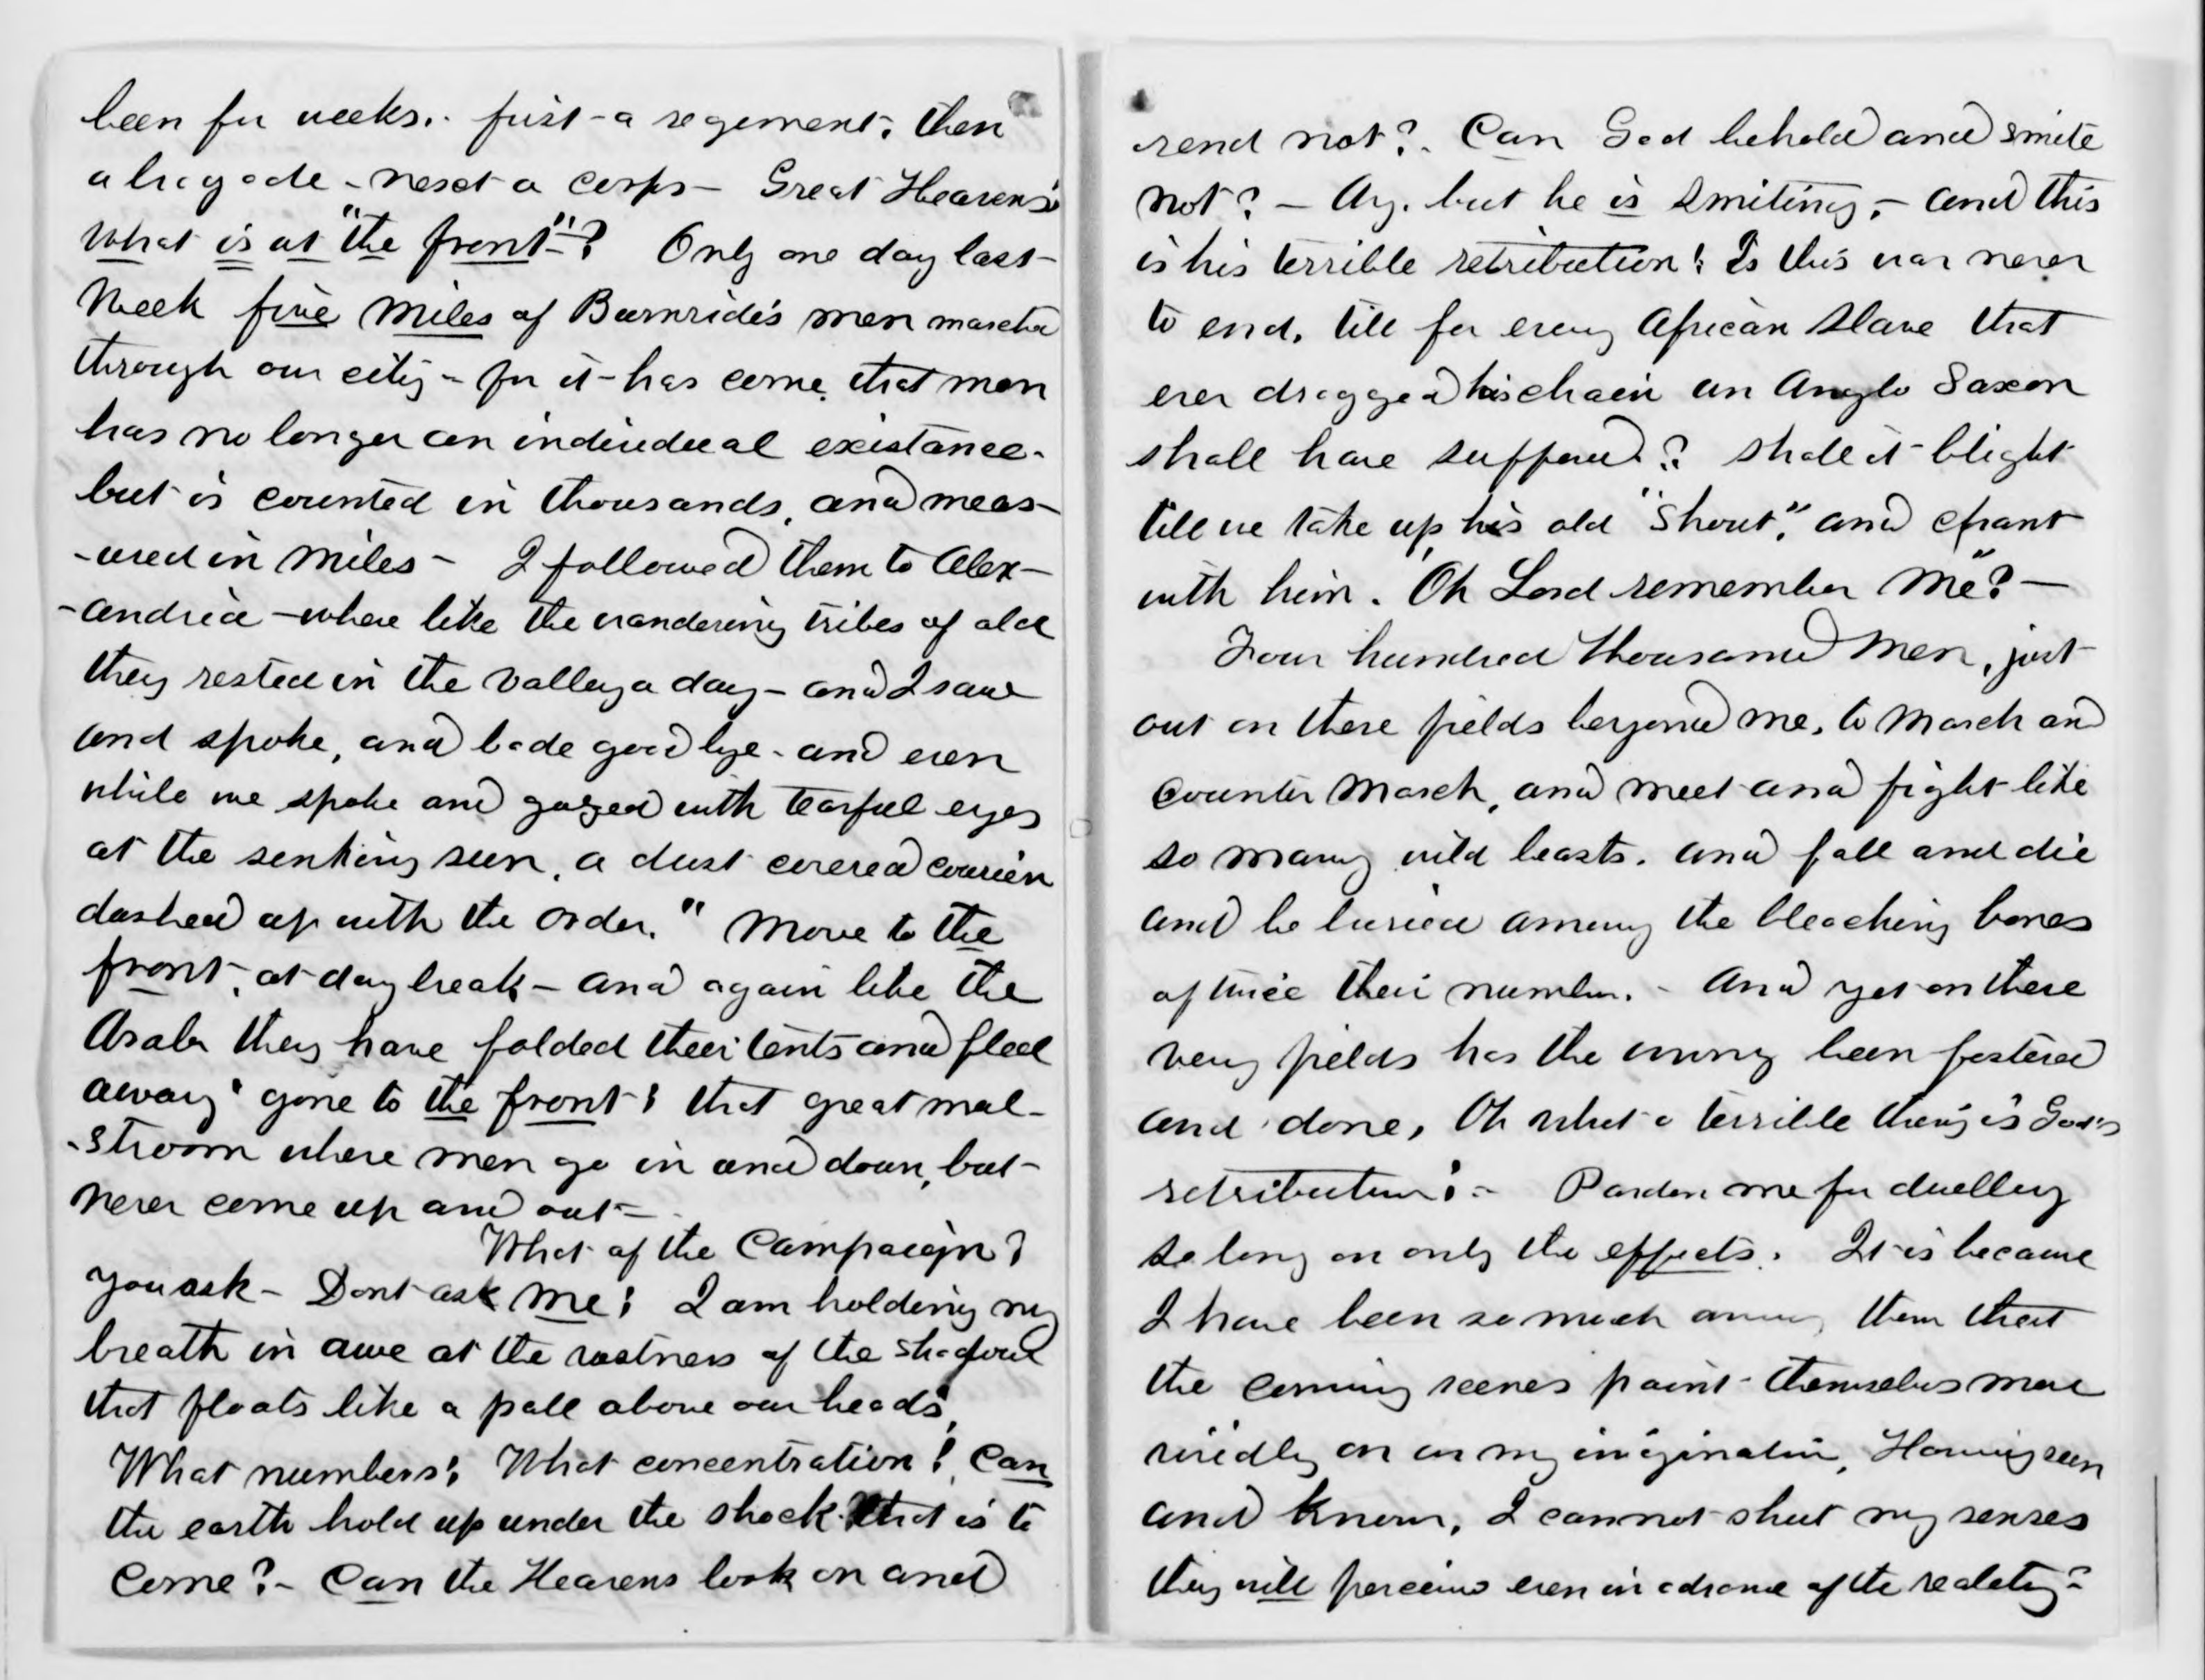 been for weeks. first - a regement, then
a brigade - next a corps - Great Heavens!
What is at "the front"? Only one day last
Week five Miles of Burnside's men marched
through our city - for it has come, that man
has no longer an individual existance -
but is counted in thousands, and meas-
-ured in Miles - I followed them to Alex-
-andria - where like the wandering tribes of old
they rested in the Valley a day - and I saw
and spoke, and bade good bye - and even
while we spoke and gazed with tearful eyes
at the sinking sun, a dust covered courier
dashed up with the order. " Move to the
front, at daybreak - and again like the
Arabs they have folded their tents and fled
away! gone to the front! that great mal-
-stroom where men go in and down, but
never come up and out -
What of the Campaign?
you ask - Dont ask Me! I am holding my
breath in awe at the vastness of the shadow
that floats like a pall above our heads,
What numbers! What concentration! Can
the earth hold up under the shock that is to
Come? - Can the Heavens look on and
rend not? Can God behold and smite
Not? - Ay. but he is Smiting, - and this
is his terrible retribution! Is this war never
to end, till for every African Slave that
ever dragged his chain an Anglo Saxon
shall have suffered? shall it blight
till we take up his old "Shout", and chant
with him. "Oh Lord remember Me"? -
Four hundred thousand Men, just
out on there fields beyond me, to March and
Counter March, and meet and fight like
so many wild beasts. and fall and die
and be buried among the bleaching bones
of twice their number. - And yet on these
very fields has the wrong been festered
and done, Oh what a terrible thing is God's
retribution! - Pardon me for dwelling
so long on only the effects. It is because
I have been so much among them that
the coming scenes paint themselves more
vividly on on my imagination, Having seen
and known, I cannot shut my senses
they will perceive even in a dream of the reality -